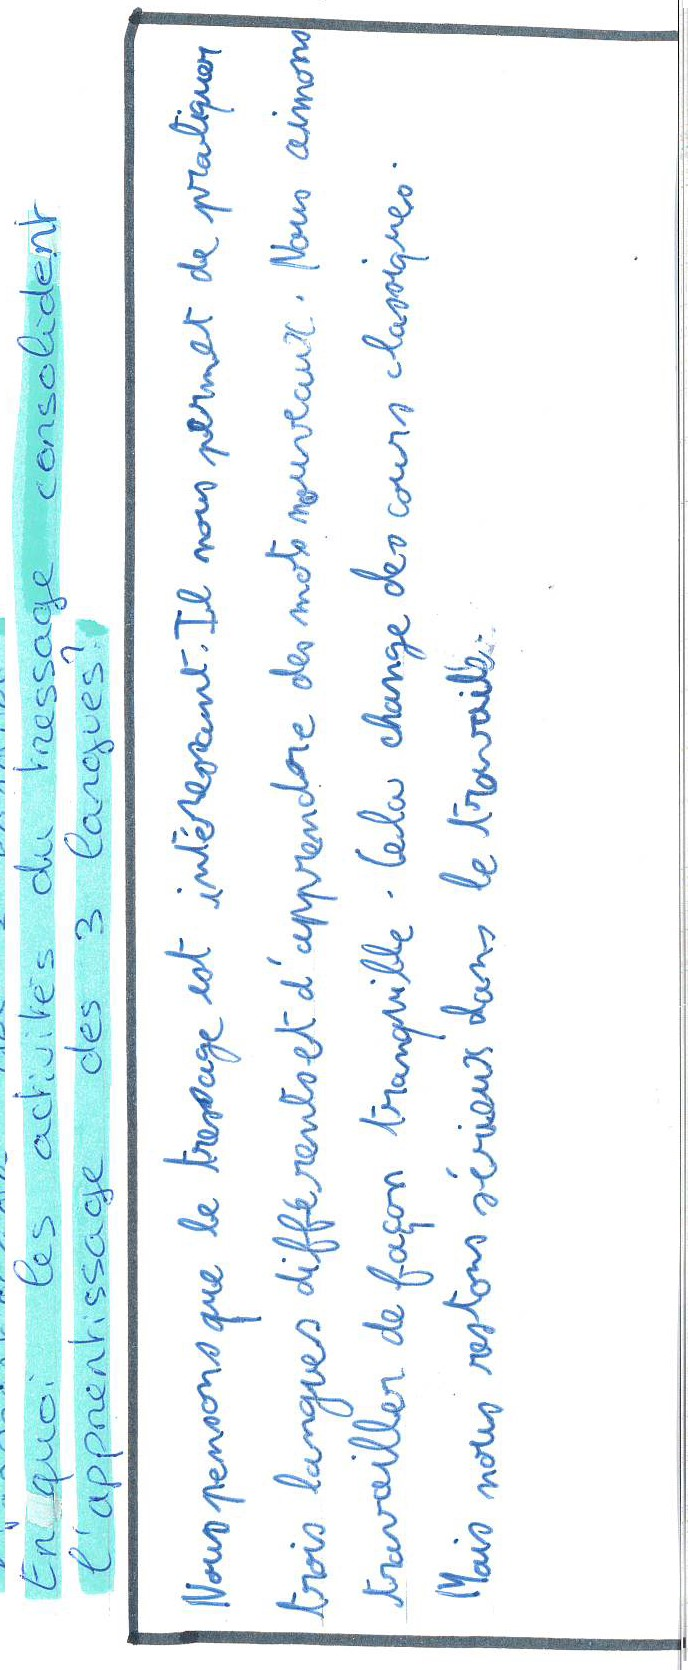 En quoi les activités du tressage consolident
l'apprentissage des 3 langues?
Nous pensons que le tressage est intéressant. Il nous permet de pratiquer
trois langues différents et d'apprendre des mots nouveaux. Nous aimons
travailler de façon tranquille. Cela change des cours classiques.
Mais nous restons sérieux dans le travaille.